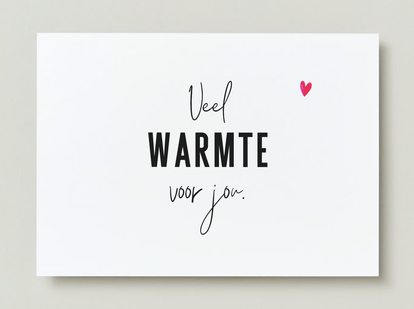 Veel
WARMTE
voor jou.